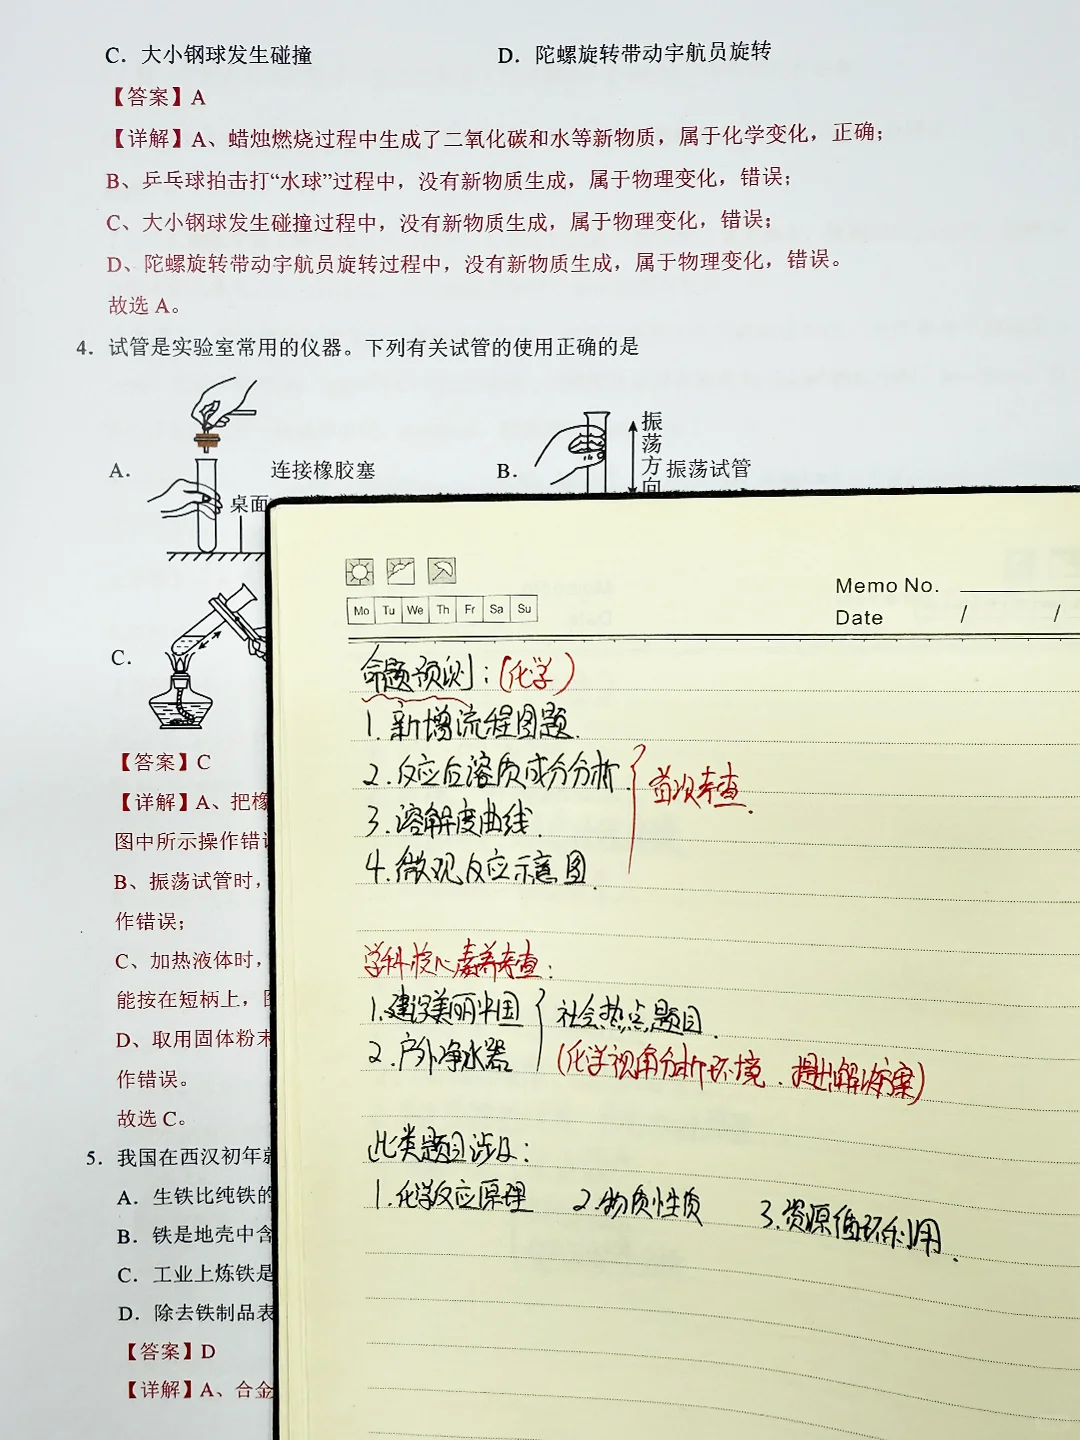 C. 大小钢球发生碰撞
D. 陀螺旋转带动宇航员旋转
【答案】A
【详解】A、蜡烛燃烧过程中生成了二氧化碳和水等新物质，属于化学变化，正确；
B、乒乓球拍击打“水球”过程中，没有新物质生成，属于物理变化，错误；
C、大小钢球发生碰撞过程中，没有新物质生成，属于物理变化，错误；
D、陀螺旋转带动宇航员旋转过程中，没有新物质生成，属于物理变化，错误。
故选 A。
4. 试管是实验室常用的仪器。下列有关试管的使用正确的是
A.
连接橡胶塞
桌面
B.
振荡方向
振荡试管
C.
【答案】C
【详解】A、把橡
图中所示操作错
B、振荡试管时，
作错误；
C、加热液体时，
能按在短柄上，
D、取用固体粉末
作错误。
故选 C。
5. 我国在西汉初年
A. 生铁比纯铁的
B. 铁是地壳中含
C. 工业上炼铁是
D. 除去铁制品表
【答案】D
【详解】A、合金
Mo Tu We Th Fr Sa Su
Memo No.
Date / /
命题预测：(化学)
1. 新增流程图题.
2. 反应后溶质成分分析.
3. 溶解度曲线.
4. 微观反应示意图.
首次考查.
学科核心素养考查：
1. 建设美丽中国
2. 户外净水器
社会热点题目.
(化学视角分析环境、提出解决方案)
此类题目涉及：
1. 化学反应原理 2. 物质性质 3. 资源循环利用.